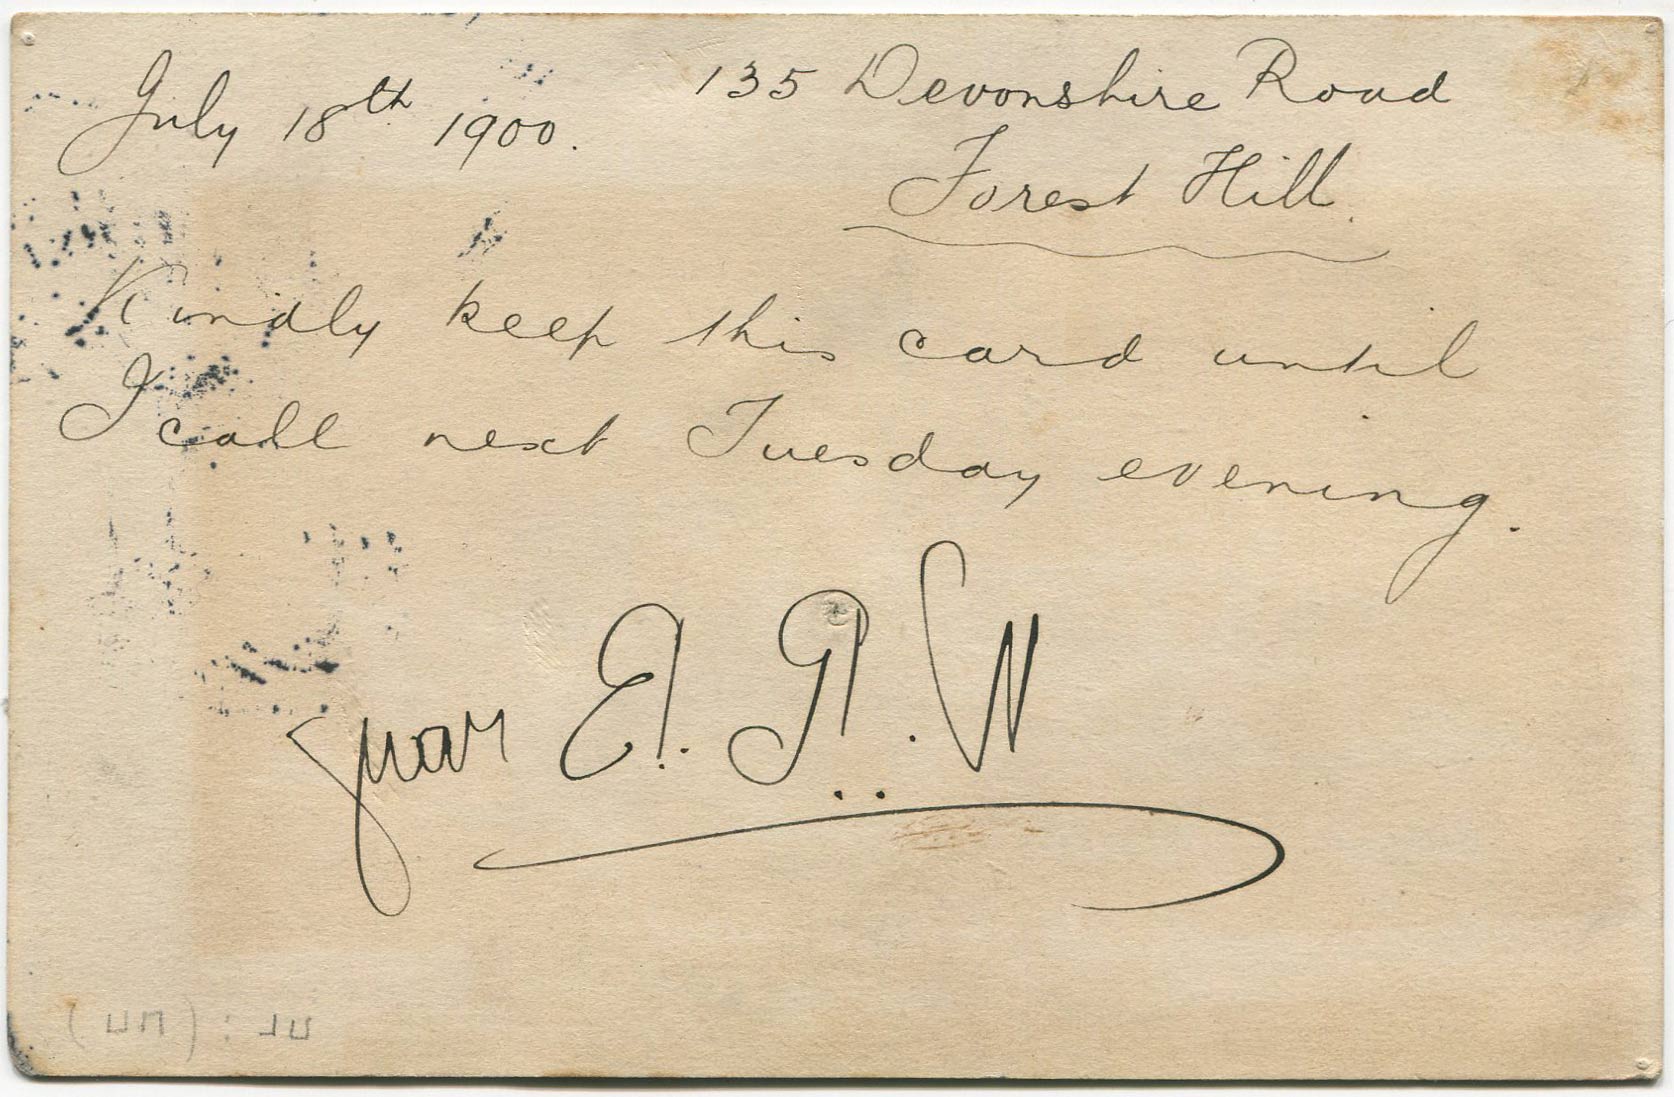 July 18th 1900.
135 Devonshire Road
Forest Hill.
Kindly keep this card until
I call next Tuesday evening.
E.
W